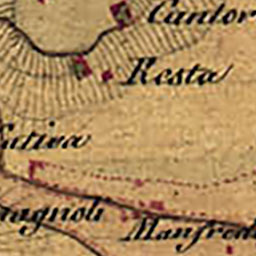 Cantor
Resta
utira
agnoli
Manfredi